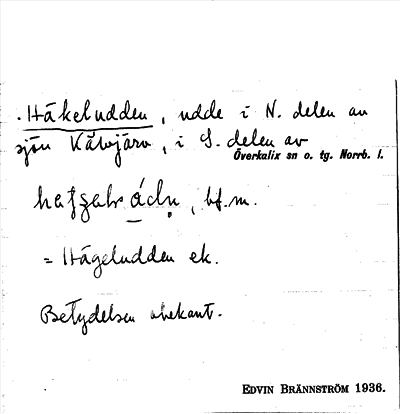 Håkeludden, udde i N. delen av
sjön Kålvjärv, i S. delen av
Överkalix sn o. tg. Norrb. l.
bf. m.
= Hägeludden ek.
Betydelsen obekant.
EDVIN BRÄNNSTRÖM 1936.